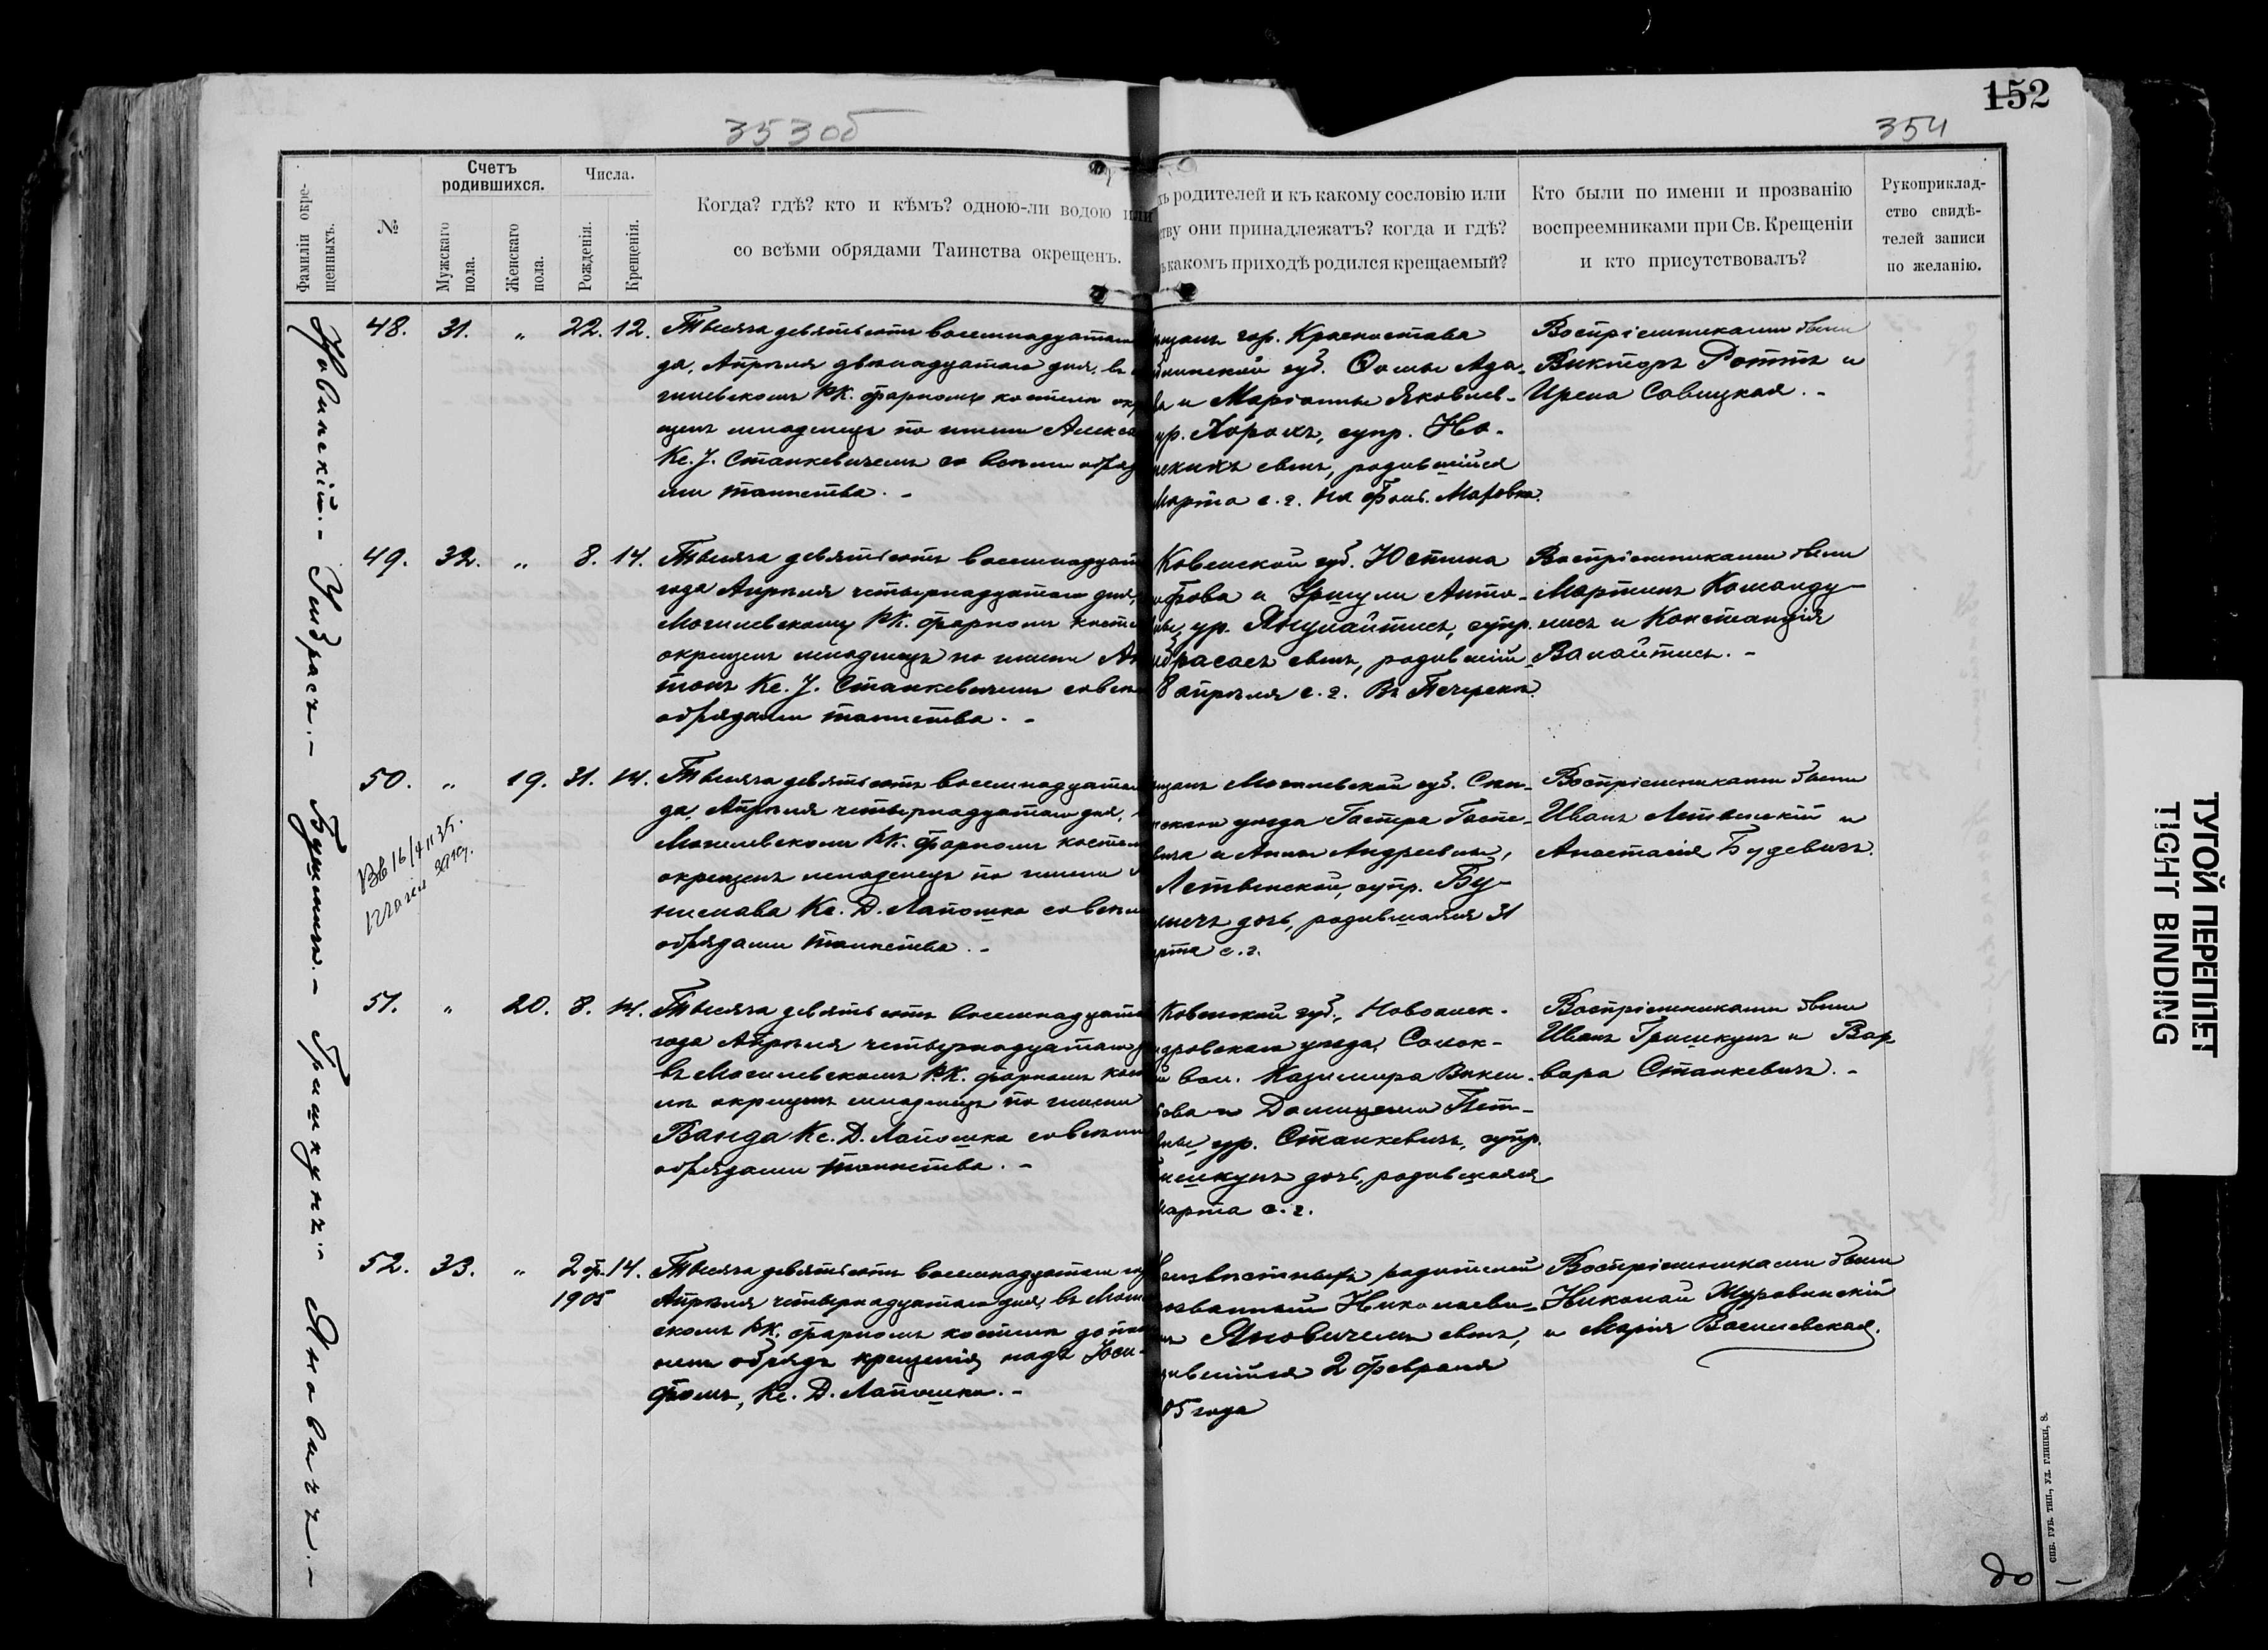 152
353об
354
Фамиліи окре-
щенныхъ.
№
Счетъ
родившихся.
Мужскаго
пола.
Женскаго
пола.
Числа.
Рожденія.
Крещенія.
Когда? гдѣ? кто и кѣмъ? одною-ли водою или
со всѣми обрядами Таинства окрещенъ.
ъ родителей и къ какому сословію или
ству они принадлежатъ? когда и гдѣ?
какомъ приходѣ родился крещаемый?
Кто были по имени и прозванію
воспреемниками при Св. Крещеніи
и кто присутствовалъ?
Рукоприклад-
ство свидѣ-
телей записи
по желанію.
48. 31. „ 22. 12.
Тысяча девятьсотъ восемнадцатаго
да, Апрѣля двѣнадцатаго дня, въ
гилевскомъ РК. фарномъ костелѣ окр
щенъ младенецъ по имени Алекса
Кс. І. Станкевичемъ со всѣми обряд
ми таинства. –
щанъ гор. Красностава
линской губ. Ѳомы Ада-
ва и Маріанны Яковлев-
ур. Хорохъ, супр. Но-
нскихъ сынъ, родившійся
Марта с. г. на фольв. Маровка.
Воспріемниками были
Викторъ Роттъ и
Ирена Савицкая. –
49. 32. „ 8. 14.
Тысяча девятьсотъ восемнадцат
года Апрѣля четырнадцатаго дня,
Могилевскомъ РК. фарномъ косте
окрещенъ младенецъ по имени Ан
тонъ Кс. І. Станкевичемъ со всѣм
обрядами таинства. –
Ковенской губ. Юстина
ифова и Уршули Анто-
ны, ур. Янулайтисъ, супр.
ибрасасъ сынъ, родившій-
8 апрѣля с. г. въ Печерскѣ.
Воспріемниками были
Мартинъ Команду-
лисъ и Констанція
Валайтисъ. –
50. „ 19. 31. 14.
Тысяча девятьсотъ восемнадцатаго
да, Апрѣля четырнадцатаго дня,
Могилевскомъ РК. фарномъ костел
окрещенъ младенецъ по имени
нислава Кс. Д. Лапошко со всѣми
обрядами таинства. –
щанъ Могилевской губ. Сѣн-
нскаго уѣзда
вича и Анны Андреевны,
Летвинской, супр. Бу-
дочь, родившаяся 31
рта с. г.
Воспріемниками были
Иванъ Летвинскій и
Анастасія Будевичъ.
51. „ 20. 8. 14.
Тысяча девятьсотъ восемнадцата
года Апрѣля четырнадцатаго д
въ Могилевскомъ Р.К. фарномъ кост
лѣ окрещенъ младенецъ по имени
Ванда Кс. Д. Лапошко со всѣми
обрядами таинства. –
Ковенской губ., Новоалек-
ндровскаго уѣзда, Солок-
й вол. Казимира Викен-
ьева и Домицели Пет-
вны ур. Станкевичъ, супр.
ишкунъ дочь, родившаяся
марта с. г.
Воспріемниками были
Иванъ Гришкунъ и Вар-
вара Станкевичъ. –
52. 33. „ 2 ф. 14.
1905
Тысяча девятьсотъ восемнадцатаго го
Апрѣля четырнадцатаго дня, въ Моги
скомъ РК. фарномъ костелѣ допол
ненъ обрядъ крещенія надъ Іоси-
фомъ, Кс. Д. Лапошко. –
Неизвѣстныхъ родителей
названный Николаеви-
мъ Яновичемъ сынъ,
дившійся 2 февраля
05 года
Воспріемниками были
Николай Журавинскій
и Марія Василевская.
Новинскій. – Умбрасъ. – Гришкунъ „ Яновичъ. –
СПБ. ГУБ. ТИП., УЛ. ГЛИНКИ, 8.
до –
ТУГОЙ ПЕРЕПЛЕТ
TIGHT BINDING